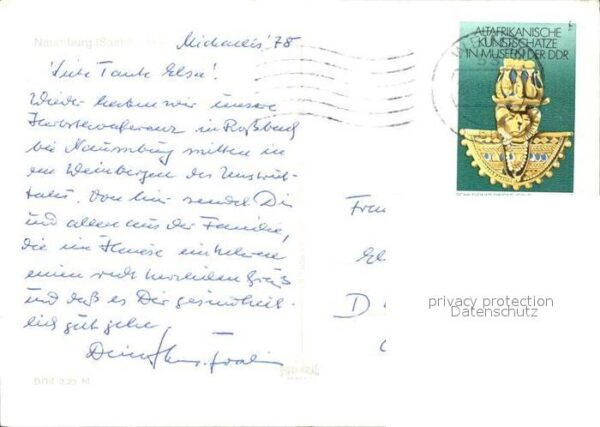 Naumburg (Saale)
Michaelis '78
Liebe Tante Elsa!
Wieder haben wir unsere
Herbstkonferenz in Roßbach
bei Naumburg mitten in
den Weinbergen des Unstrut-
tales. Von hier sendet Dir
und allen aus der Familie,
die im Hause einkehren
einen recht herzlichen Gruß
und daß es Dir gesundheit-
lich gut gehe
Dein
ALTAFRIKANISCHE
KUNSTSCHÄTZE
IN MUSEEN DER DDR
Frau
El
D
privacy protection
Datenschutz